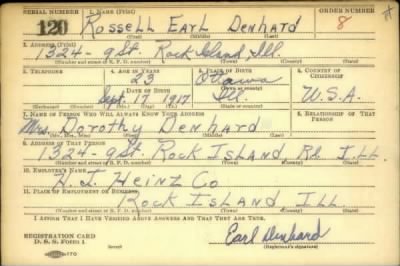 SERIAL NUMBER 1. NAME (Print) ORDER NUMBER
120 Rossell Earl Denhard 8
(First) (Middle) (Last)
2. ADDRESS (Print)
1324-9 St. Rock Island, Ill.
(Number and street or R. F. D. number) (Town) (County) (State)
3. TELEPHONE 4. AGE IN YEARS 5. PLACE OF BIRTH 6. COUNTRY OF CITIZENSHIP
23 Ottawa
DATE OF BIRTH (Town or county)
Sept. 17 1917 Ill. U.S.A.
(Exchange) (Number) (Mo.) (Day) (Yr.) (State or country)
7. NAME OF PERSON WHO WILL ALWAYS KNOW YOUR ADDRESS 8. RELATIONSHIP OF THAT PERSON
Mrs. Dorothy Denhard
(Mr., Mrs., Miss) (First) (Middle) (Last)
9. ADDRESS OF THAT PERSON
1324-9 St. Rock Island R.I. Ill.
(Number and street or R. F. D. number) (Town) (County) (State)
10. EMPLOYER'S NAME
H. J. Heinz Co
11. PLACE OF EMPLOYMENT OR BUSINESS
Rock Island Ill
(Number and street or R. F. D. number) (Town) (County) (State)
I AFFIRM THAT I HAVE VERIFIED ABOVE ANSWERS AND THAT THEY ARE TRUE.
REGISTRATION CARD
D. S. S. Form 1
Earl Denhard
(Registrant's signature)